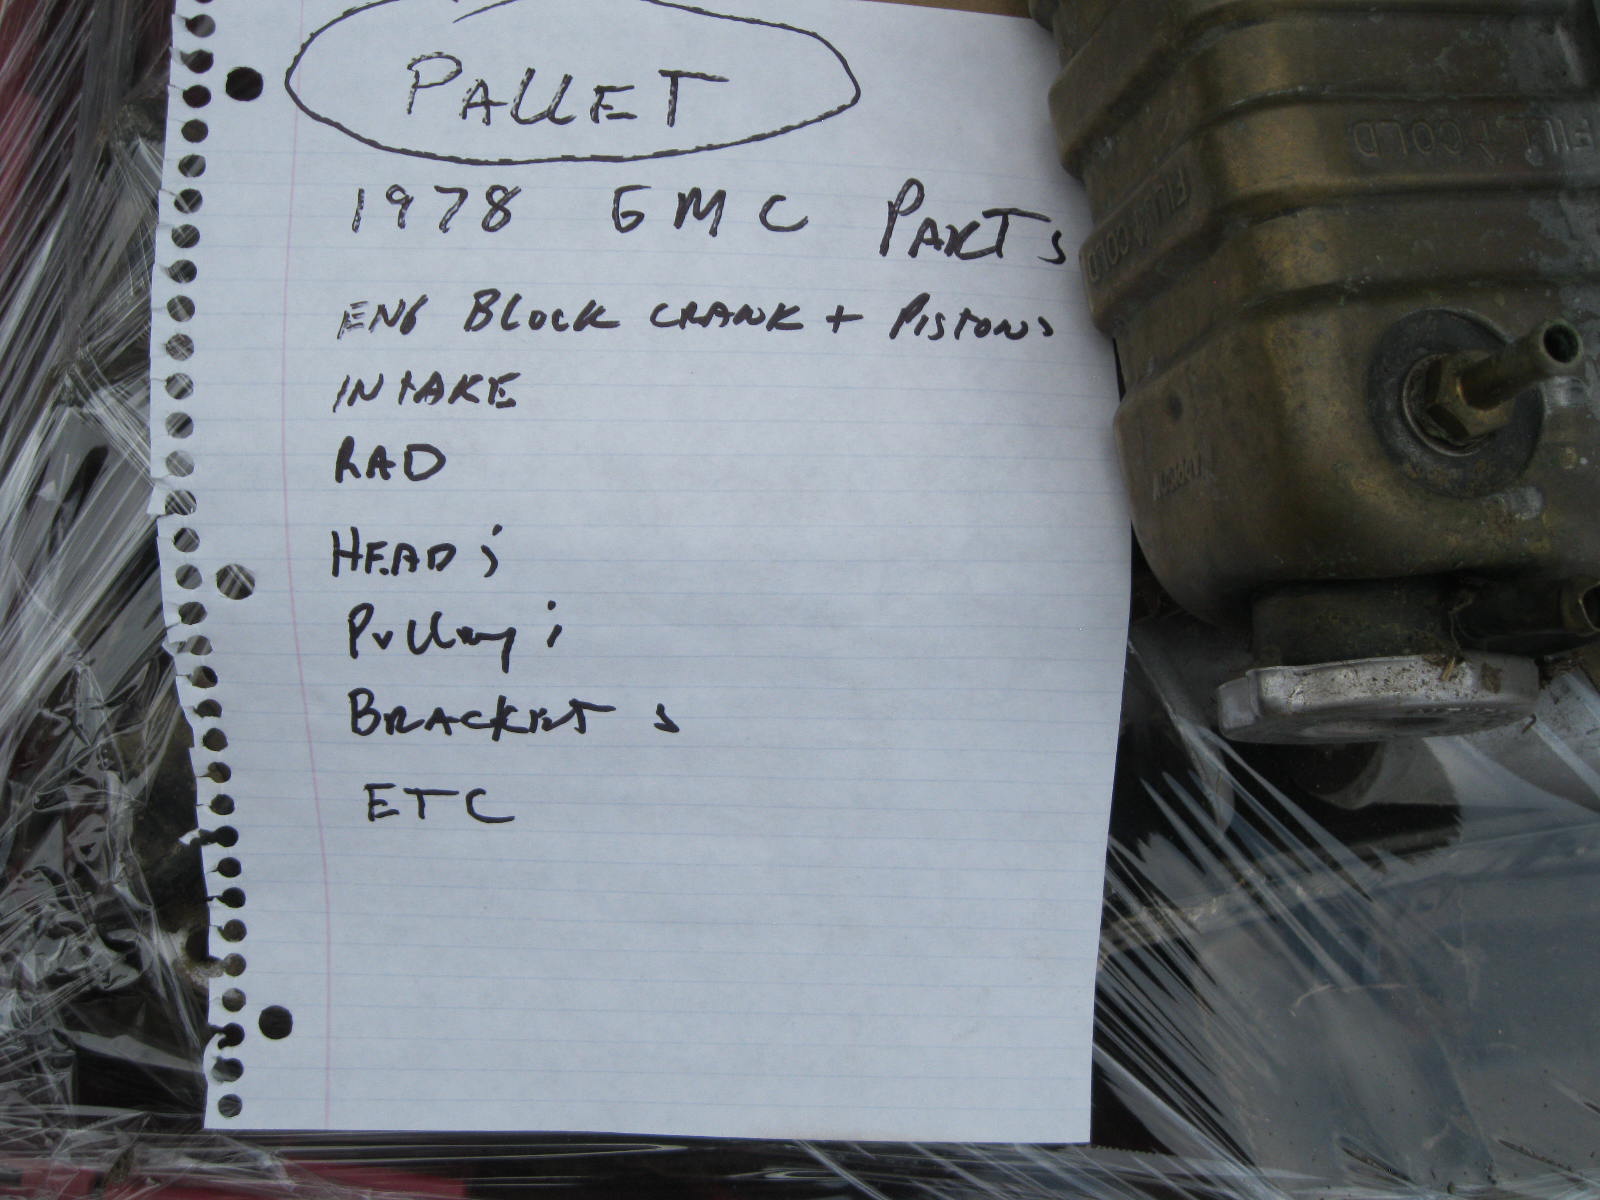 PALLET
1978 GMC PARTS
ENG BLOCK CRANK + PISTONS
INTAKE
RAD
HEADS
Pulleys
BRACKETS
ETC
FILL COLD
FILL COLD